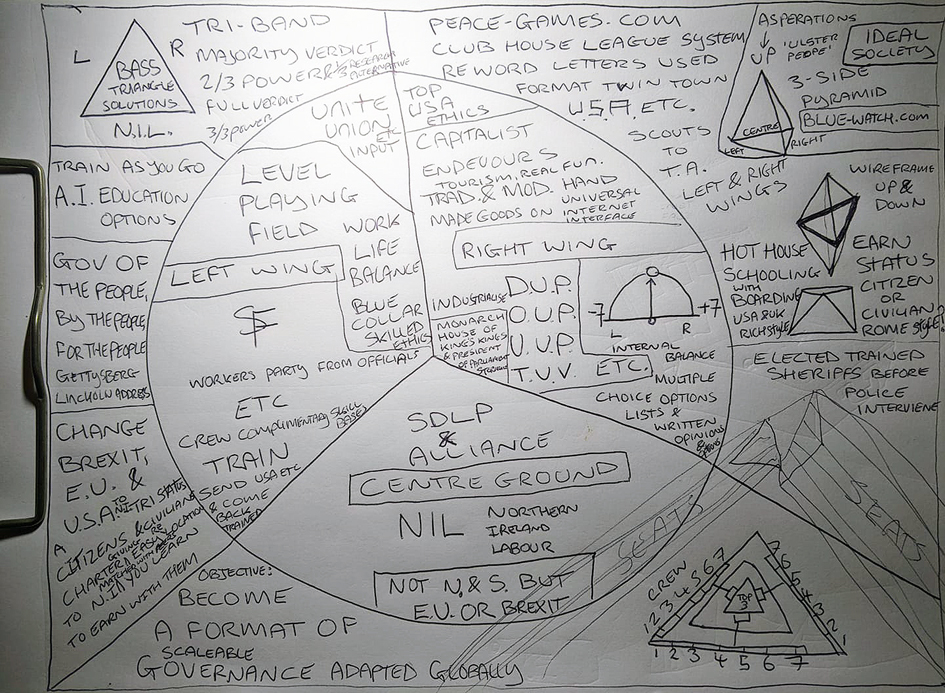 L
R
BASS
TRIANGLE
SOLUTIONS
N.I.L.
TRI-BAND
MAJORITY VERDICT
2/3 POWER & 1/3 RESEARCH ALTERNATIVE
FULL VERDICT
3/3 POWER
UNITE
UNION
ETC
INPUT
PEACE-GAMES.COM
CLUB HOUSE LEAGUE SYSTEM
REWORD LETTERS USED
FORMAT TWIN TOWN
U.S.A. ETC.
TOP
USA
ETHICS
CAPITALIST
ENDEVOURS
TOURISM. REAL FUN.
TRAD. & MOD. HAND
MADE GOODS ON UNIVERSAL
INTERNET
INTERFACE
SCOUTS
TO
T.A.
LEFT & RIGHT
WINGS
ASPERATIONS
UP 'ULSTER
PEOPLE'
IDEAL
SOCIETY
3-SIDE
PYRAMID
BLUE-WATCH.COM
CENTRE
LEFT
RIGHT
TRAIN AS YOU GO
A.I. EDUCATION
OPTIONS
LEVEL
PLAYING
FIELD
WORK
LIFE
BALANCE
LEFT WING
BLUE
COLLAR
SKILLED
ETHICS
WORKERS PARTY FROM OFFICIALS
ETC
CREW COMPLIMENTARY SKILL
BASES
TRAIN
SEND USA ETC
& COME
BACK
TRAINED
RIGHT WING
INDUSTRIALISE
MONARCH
HOUSE OF
KINGS KINGS
& PRESIDENT
OF PARLIAMENT
D.U.P.
O.U.P.
U.U.P.
T.U.V.
ETC.
-7
+7
L
R
INTERNAL
BALANCE
MULTIPLE
CHOICE OPTIONS
LISTS &
WRITTEN
OPINIONS
WIREFRAME
UP &
DOWN
EARN
STATUS
CITIZEN
OR
CIVILIAN
ROME STYLE
HOT HOUSE
SCHOOLING
WITH
BOARDING
USA & UK
RICH STYLE
ELECTED TRAINED
SHERIFFS BEFORE
POLICE
INTERVIENE
GOV OF
THE PEOPLE,
BY THE PEOPLE,
FOR THE PEOPLE
GETTYSBERG
LINCHOLN ADDRESS
CHANGE
BREXIT,
E.U. &
U.S.A. TO N.I. TRI STATUS
A CITIZENS & CIVILIANS
CHARTER EASY
TO N.I. IF YOU LEARN
TO EARN WITH THEM
SDLP
&
ALLIANCE
CENTRE GROUND
NIL
NORTHERN
IRELAND
LABOUR
NOT N, & S. BUT
E.U. OR BREXIT
SEATS
SEATS
OBJECTIVE:
BECOME
A FORMAT OF
SCALEABLE
GOVERNANCE ADAPTED GLOBALLY
CREW
1 2 3 4 5 6 7
TOP
3
7 6 5 4 3 2 1
1 2 3 4 5 6 7